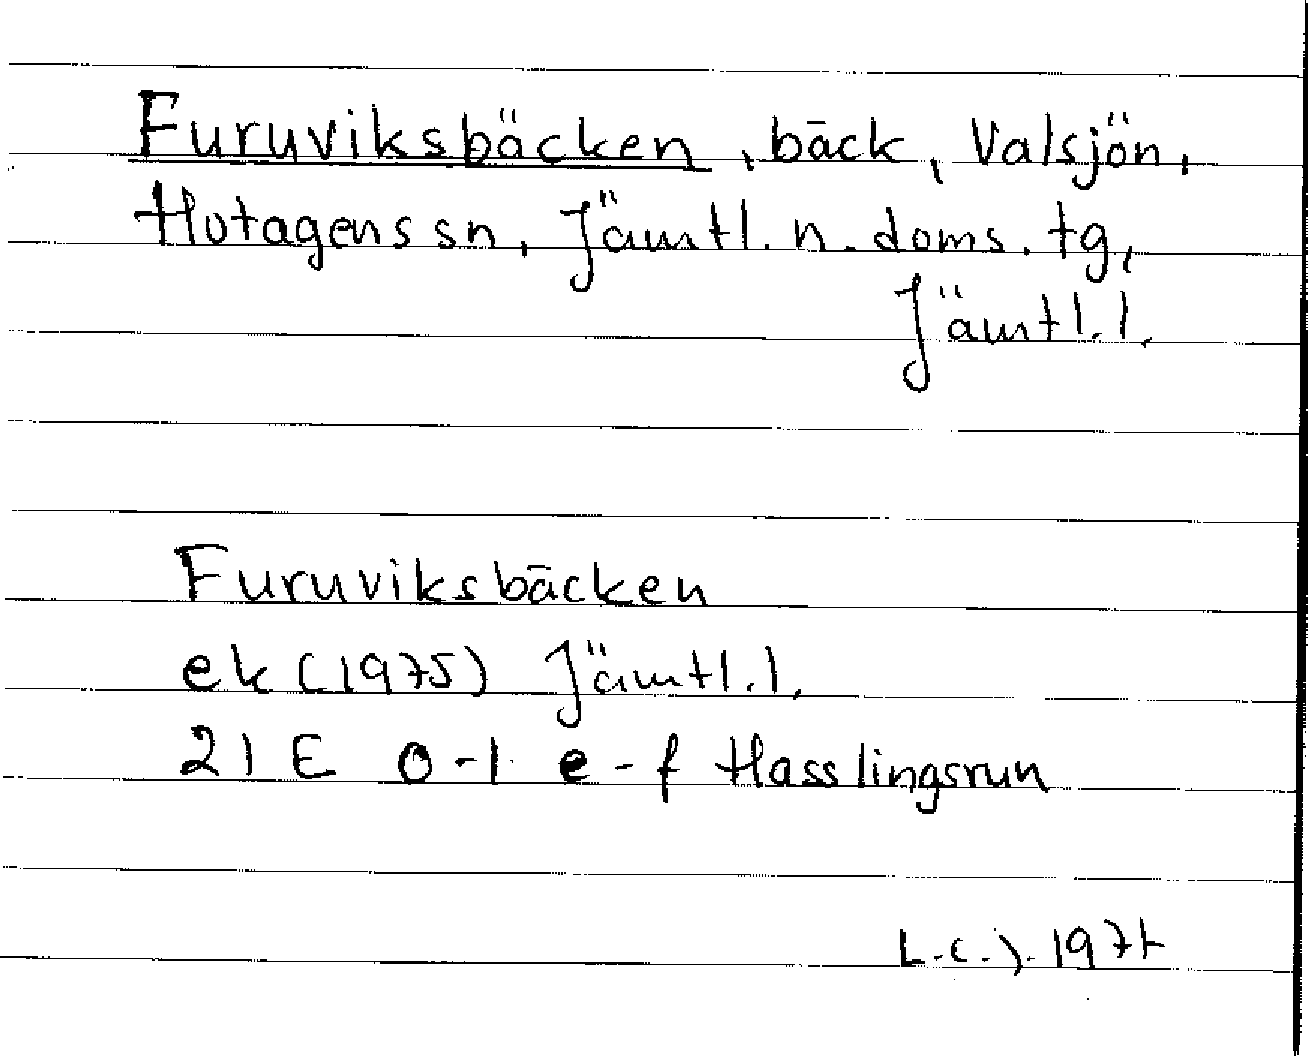 Furuviksbäcken, bäck, Valsjön,
Hotagens sn, Jämtl. n. doms. tg,
Jämtl. l.
Furuviksbäcken
ek (1975) Jämtl. l.
21 E 0-1 e-f Hasslingsrun
L.C.J.